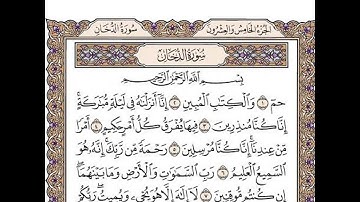 الجزء الخامس والعشرون
سورة الدخان
سورة الدخان
بسم الله الرحمن الرحيم
حم ۝١ والكتاب المبين ۝٢ إنا أنزلناه في ليلة مباركة
إنا كنا منذرين ۝٣ فيها يفرق كل أمر حكيم ۝٤ أمرا
من عندنا إنا كنا مرسلين ۝٥ رحمة من ربك إنه هو
السميع العليم ۝٦ رب السموات والأرض وما بينهما
إن كنتم موقنين ۝٧ لا إله إلا هو يحيي ويميت ربكم